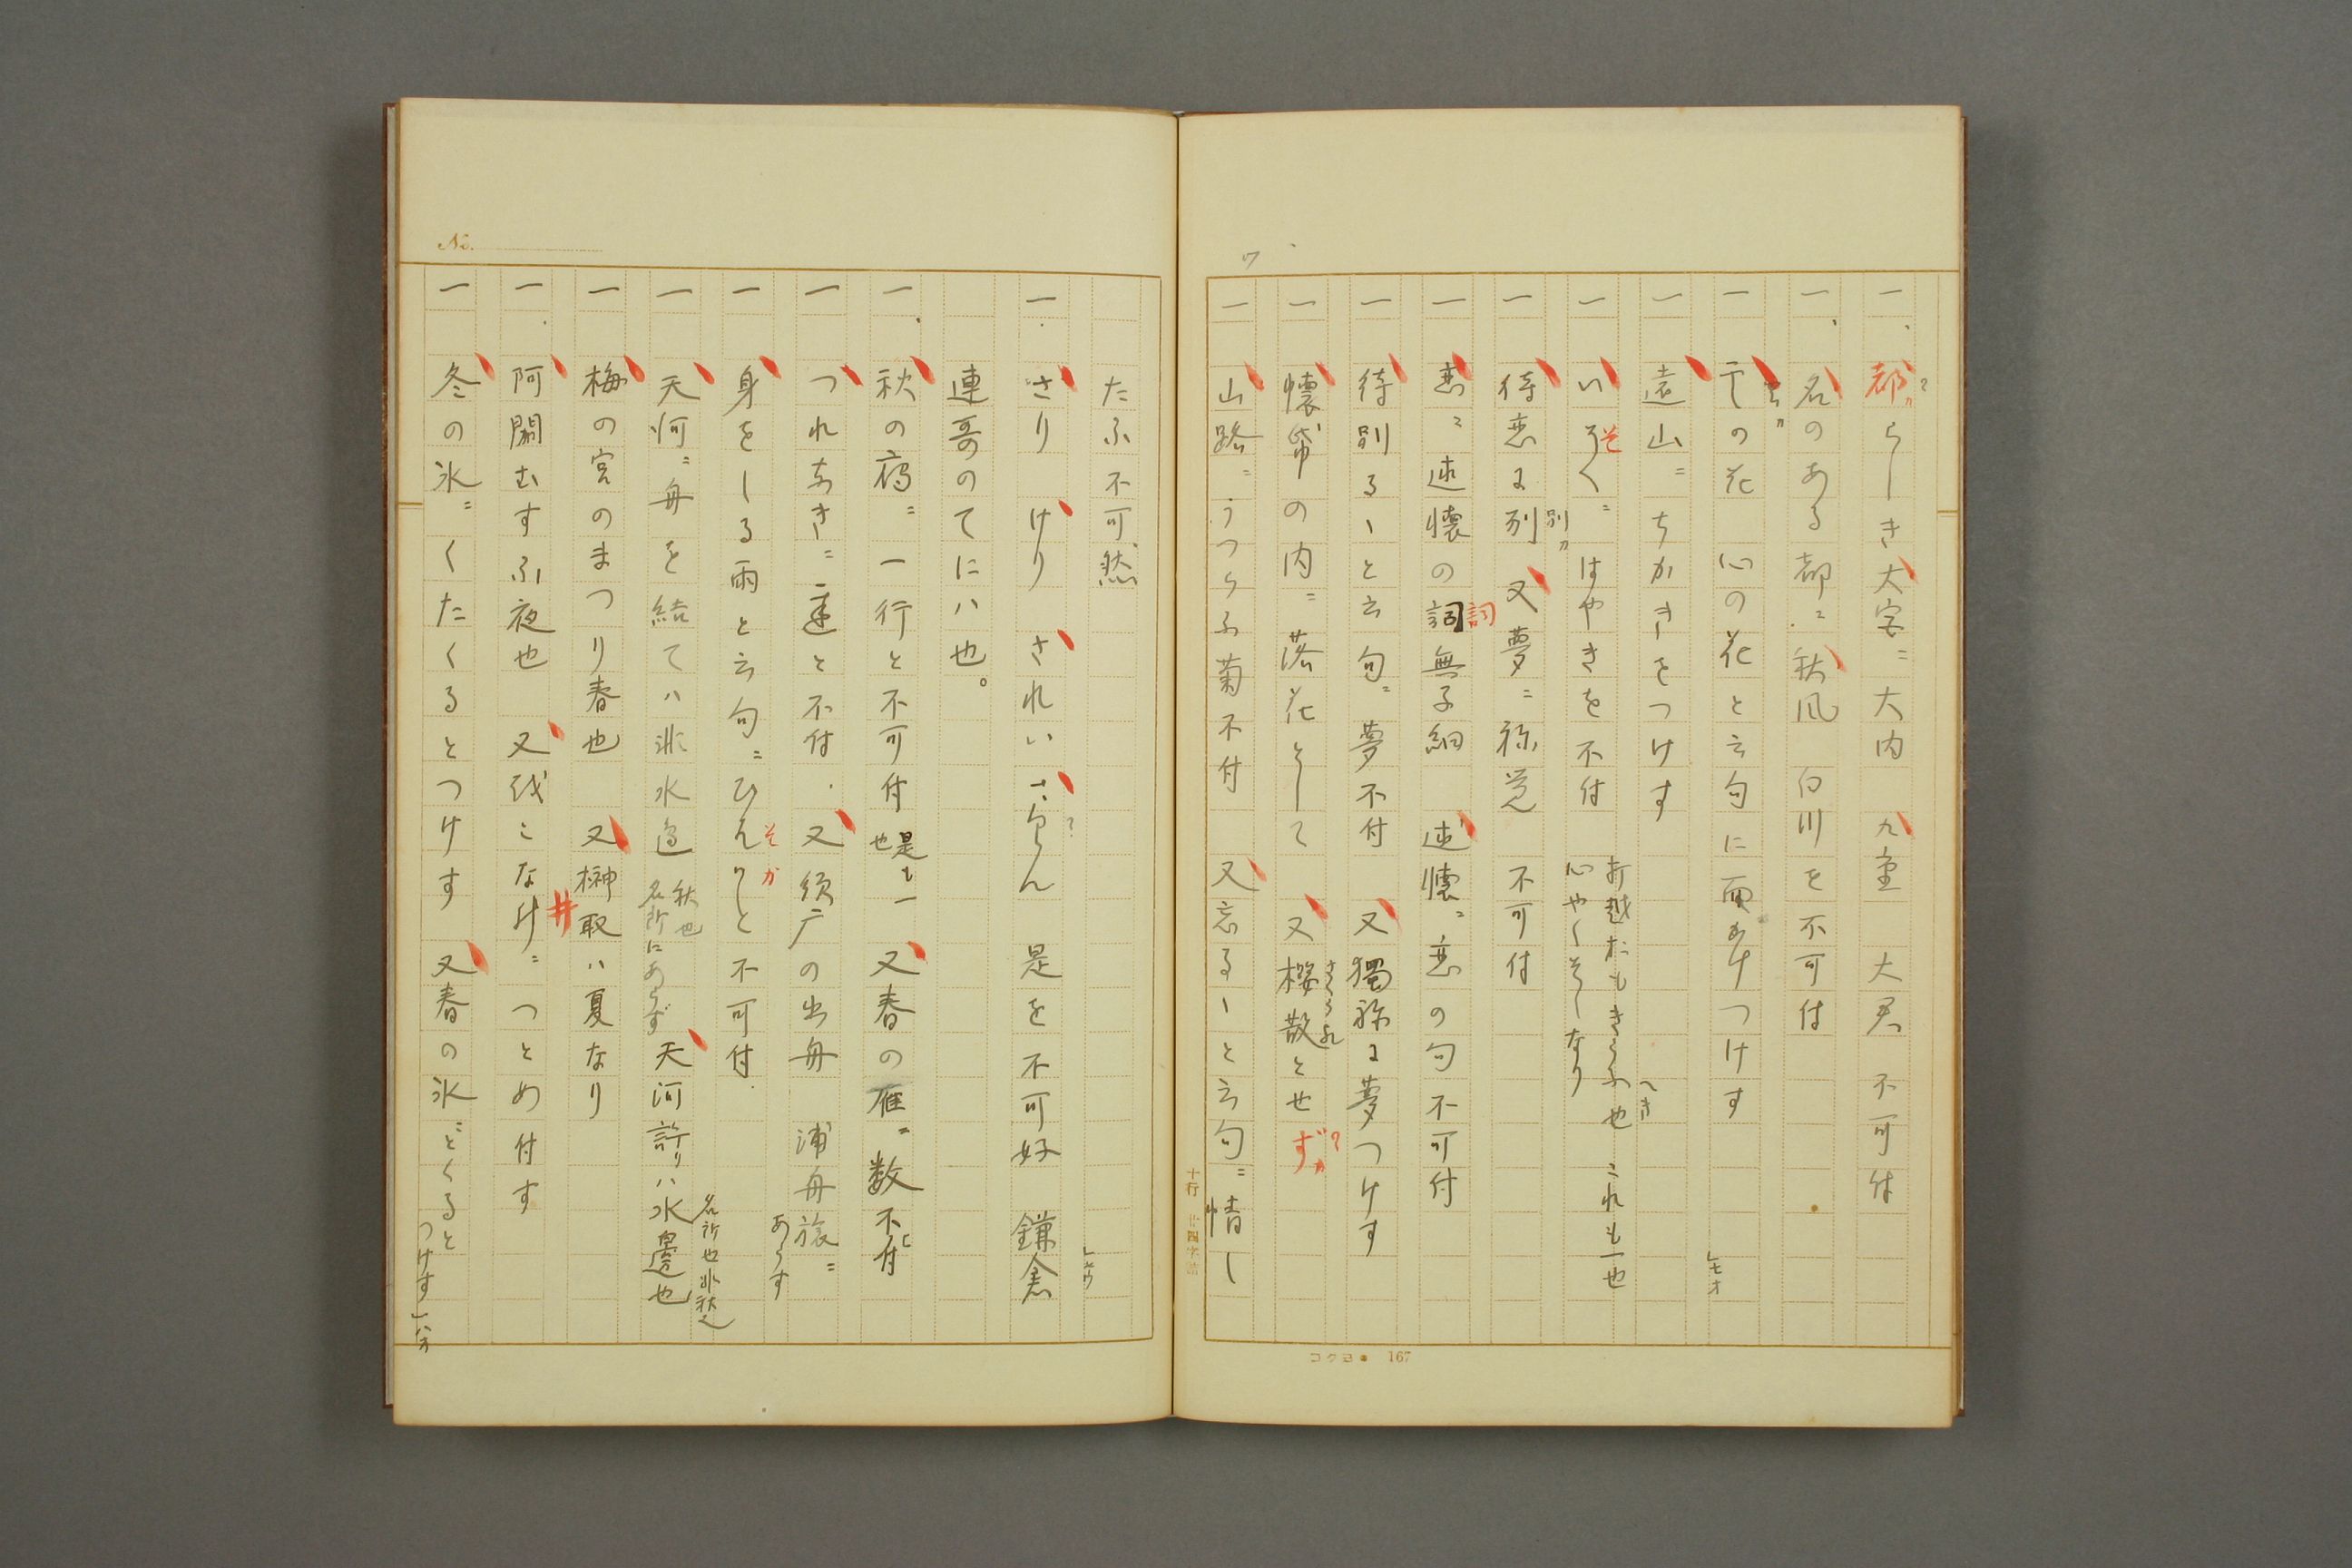 7
一、都らしき大宮ニ大内 九重 大君 不可付
一、名のある都ニ秋風 白川を不可付
一 の花 心の花と云句に面あけつけす
一 遠山ニちかきをつけす
一 いそくニはやきを不付 打越たもきらふ也 これも一也
心やくそしなり
一 待恋に列 又夢ニ祢覚 不可付
別カ
一 恋ニ述懐の詞無子細 述懐ニ恋の句不可付
詞
一 待別るゝと云句ニ夢不付 又獨祢に夢つけす
一 懐帋の内ニ落花として 又櫻散とせず
一 山路ニうつろふ菊不付 又忘るゝと云句ニ情し
十行 廿四字詰
コクヨ 167
No.
たふ不可然
一、さり けり されい らん 是を不可好 鎌倉
連哥のてにハ也。
一、秋の ニ一行と不可付 是も一也 又春の雁ニ数不付
一 つれなきニ連と不付 又須广の出舟 浦舟旅ニ
あらす
一 身をしる雨と云句ニひ と不可付
そか
一 天河ニ舟を結てハ非水邊 秋也 名所にあらず 天河許りハ水邊也
名所也非秋之
一 梅の宮のまつり春也 又榊取ハ夏なり
一 阿閦むすふ夜也 又 こなけニつとめ付す
一 冬の氷ニくたくるとつけす 又春の氷どくると
つけす